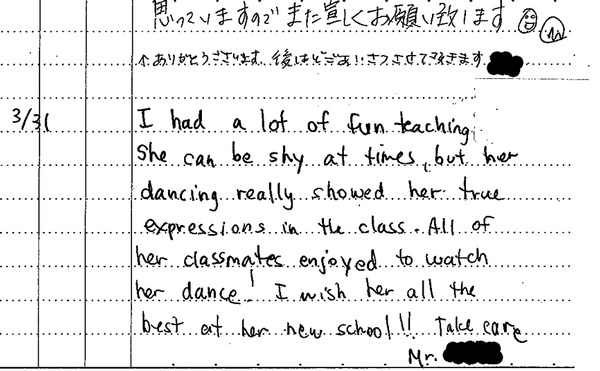 思っていますのでまた宜しくお願い致します
↑ありがとうございます。後ほどごあいさつさせて頂きます
3/31
I had a lot of fun teaching
She can be shy at times, but her
dancing really showed her true
expressions in the class. All of
her classmates enjoyed to watch
her dance! I wish her all the
best at her new school!! Take care
Mr.